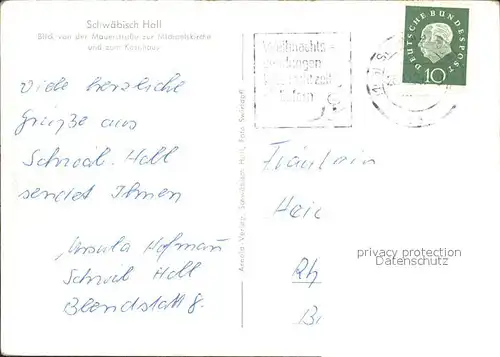 Schwäbisch Hall
Blick von der Mauerstraße zur Michaelskirche
und zum
Viele herzliche
Grüße aus
Schwäb. Hall
sendet Ihnen
Ursula Hofmann
Schwäb Hall
8.
Arnold Verlag, Schwäbisch Hall, Foto
Weihnachts-
sendungen
DEUTSCHE BUNDESPOST
10
Fräulein
Rh
privacy protection
Datenschutz